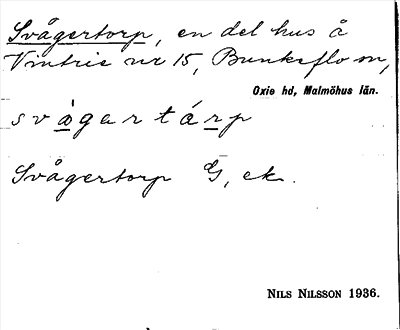 Svågertorp, en del hus å
Vintrie nr 15, Bunkeflo sn,
Oxie hd, Malmöhus län.
svågartårp
Svågertorp G, ek.
NILS NILSSON 1936.